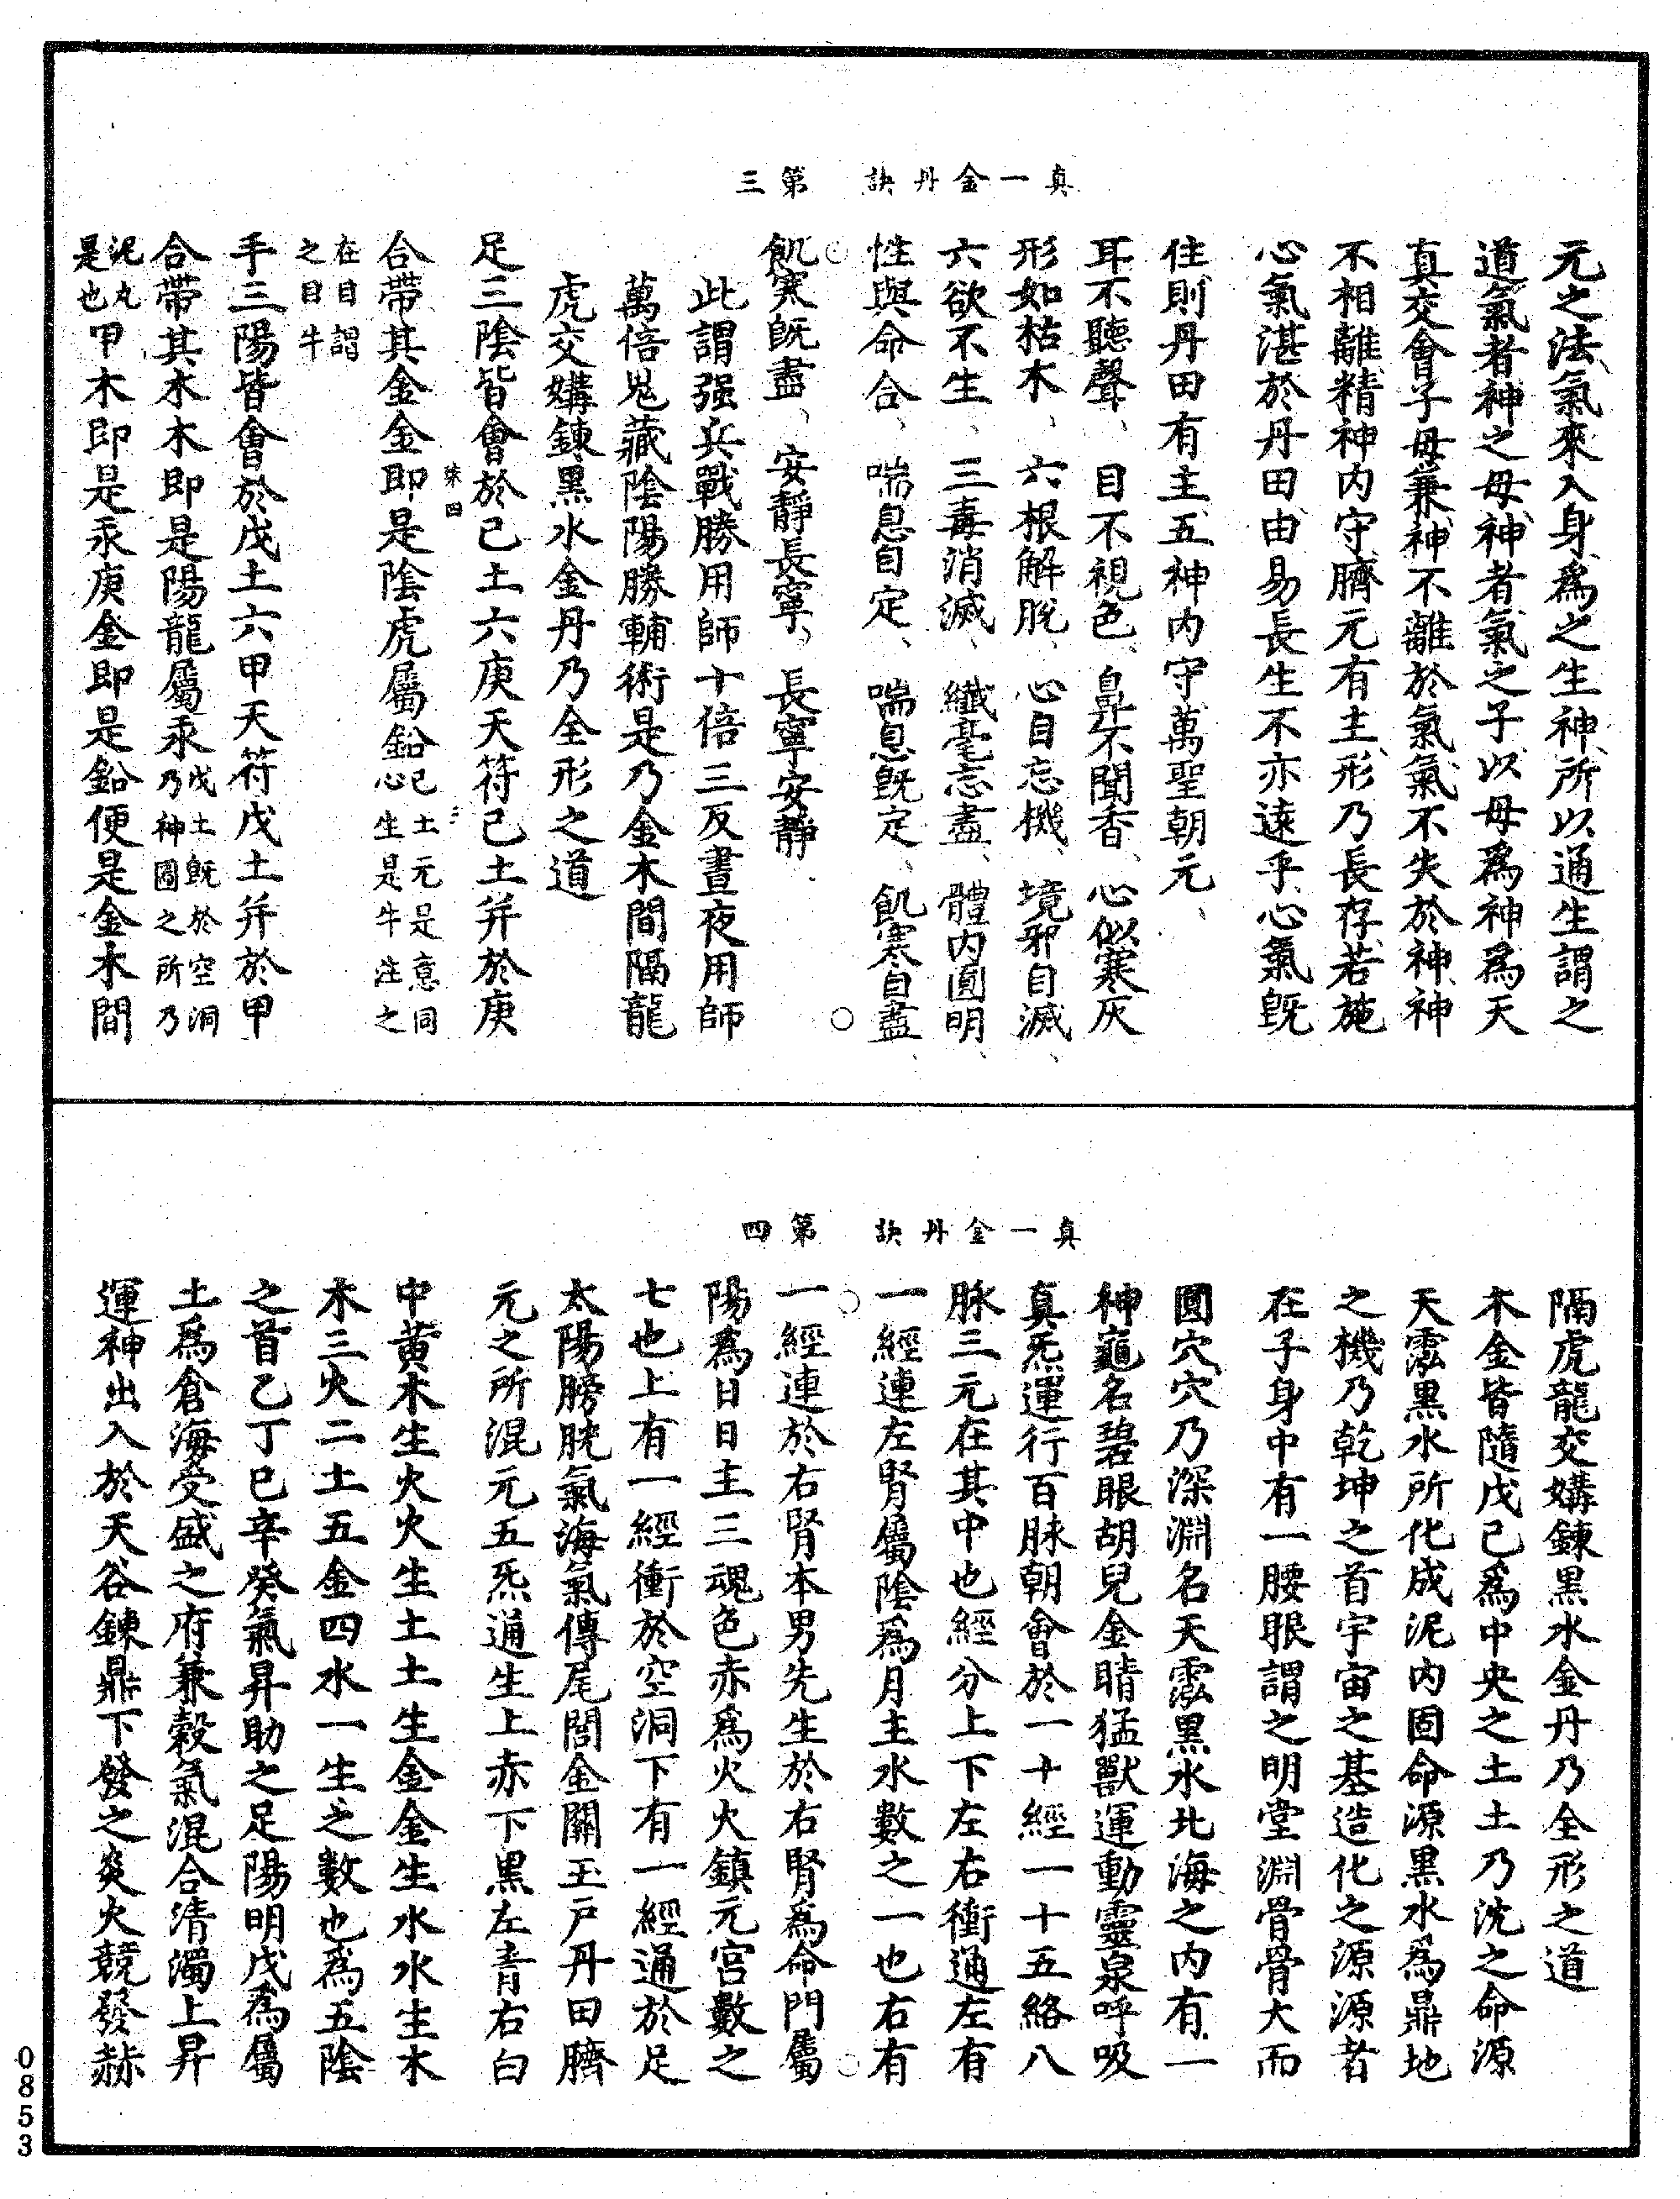 真一金丹訣　第三
元之法氣來入身、爲之生神、所以通生謂之
道、氣者神之母、神者氣之子、以母爲神爲天
真交會、子母兼神、不離於氣、氣不失於神、神
不相離、精神內守、臍元有主、形乃長存、若施
心氣湛於丹田、由易長生、不亦遠乎、心氣旣
住、則丹田有主、五神內守、萬聖朝元、
耳不聽聲、目不視色、鼻不聞香、心似寒灰
形如枯木、六根解脫、心自忘機、境邪自滅、
六欲不生、三毒消滅、纖毫忘盡、體內圓明、
性與命合、喘息自定、喘息旣定、飢寒自盡、
飢寒旣盡、安靜長寧、長寧安靜
此謂强兵戰勝用師十倍三反晝夜用師
萬倍鬼藏陰陽勝輔術是乃金木間隔龍
虎交媾鍊黑水金丹乃全形之道
足三陰皆會於己土六庚天符己土并於庚
合帶其金金即是陰虎屬鉛己土元是意同心生是牛注之
在目謂之目牛
手三陽皆會於戊土六甲天符戊土并於甲
合帶其木木即是陽龍屬汞戊土旣於空洞乃神圖之所乃
泥丸是也甲木即是汞庚金即是鉛便是金木間
真一金丹訣　第四
隔虎龍交媾鍊黑水金丹乃全形之道
木金皆隨戊己爲中央之土土乃沈之命源
天泓黑水所化成泥內固命源黑水爲鼎地
之機乃乾坤之首宇宙之基造化之源源者
在子身中有一腰眼謂之明堂淵骨骨大而
圓穴穴乃深淵名天泓黑水北海之內有一
神龜名碧眼胡兒金睛猛獸運動靈泉呼吸
真炁運行百脉朝會於一十經一十五絡八
脉三元在其中也經分上下左右衝通左有
一經連左腎屬陰爲月主水數之一也右有
一經連於右腎本男先生於右腎爲命門屬
陽爲日日主三魂色赤爲火火鎮元宮數之
七也上有一經衝於空洞下有一經通於足
太陽膀胱氣海氣傳尾閭金關玉戶丹田臍
元之所混元五炁通生上赤下黑左青右白
中黃木生火火生土土生金金生水水生木
木三火二土五金四水一生之數也爲五陰
之首乙丁巳辛癸氣昇助之足陽明戊爲屬
土爲倉海受盛之府兼穀氣混合清濁上昇
運神出入於天谷鍊鼎下發之炎火競發赫
0853